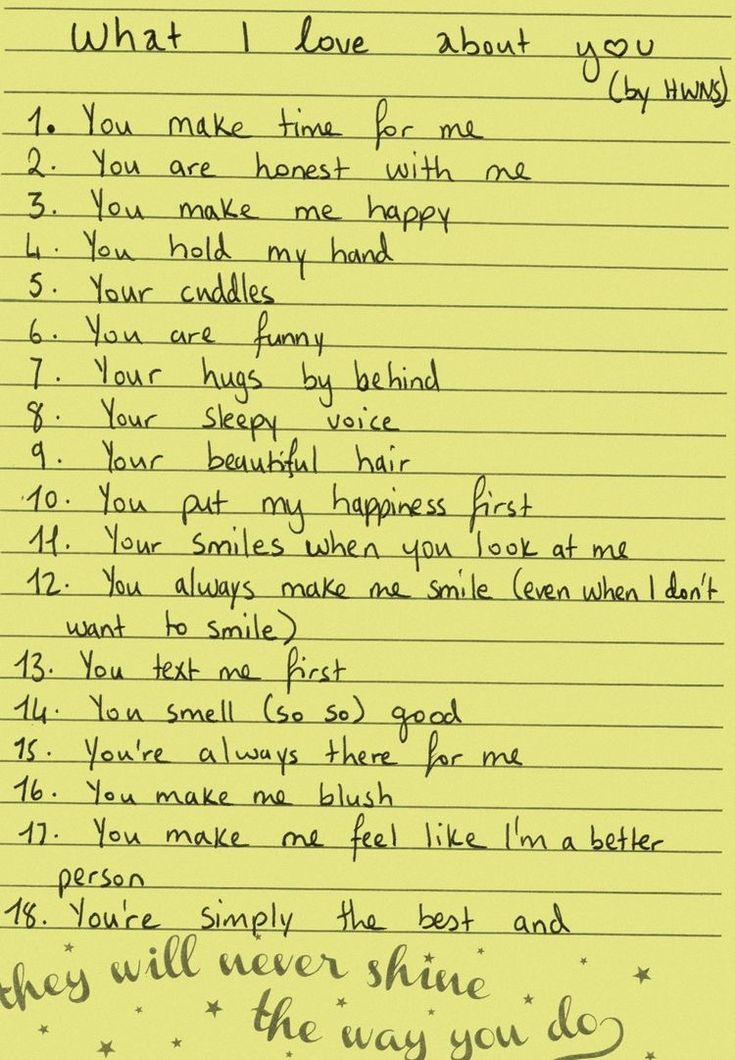 What I love about y♡u
(by HWNS)
1. You make time for me
2. You are honest with me
3. You make me happy
4. You hold my hand
5. Your cuddles
6. You are funny
7. Your hugs by behind
8. Your sleepy voice
9. Your beautiful hair
10. You put my happiness first
11. Your smiles when you look at me
12. You always make me smile (even when I don't
want to smile)
13. You text me first
14. You smell (so so) good
15. You're always there for me
16. You make me blush
17. You make me feel like I'm a better
person
18. You're simply the best and
they will never shine
the way you do